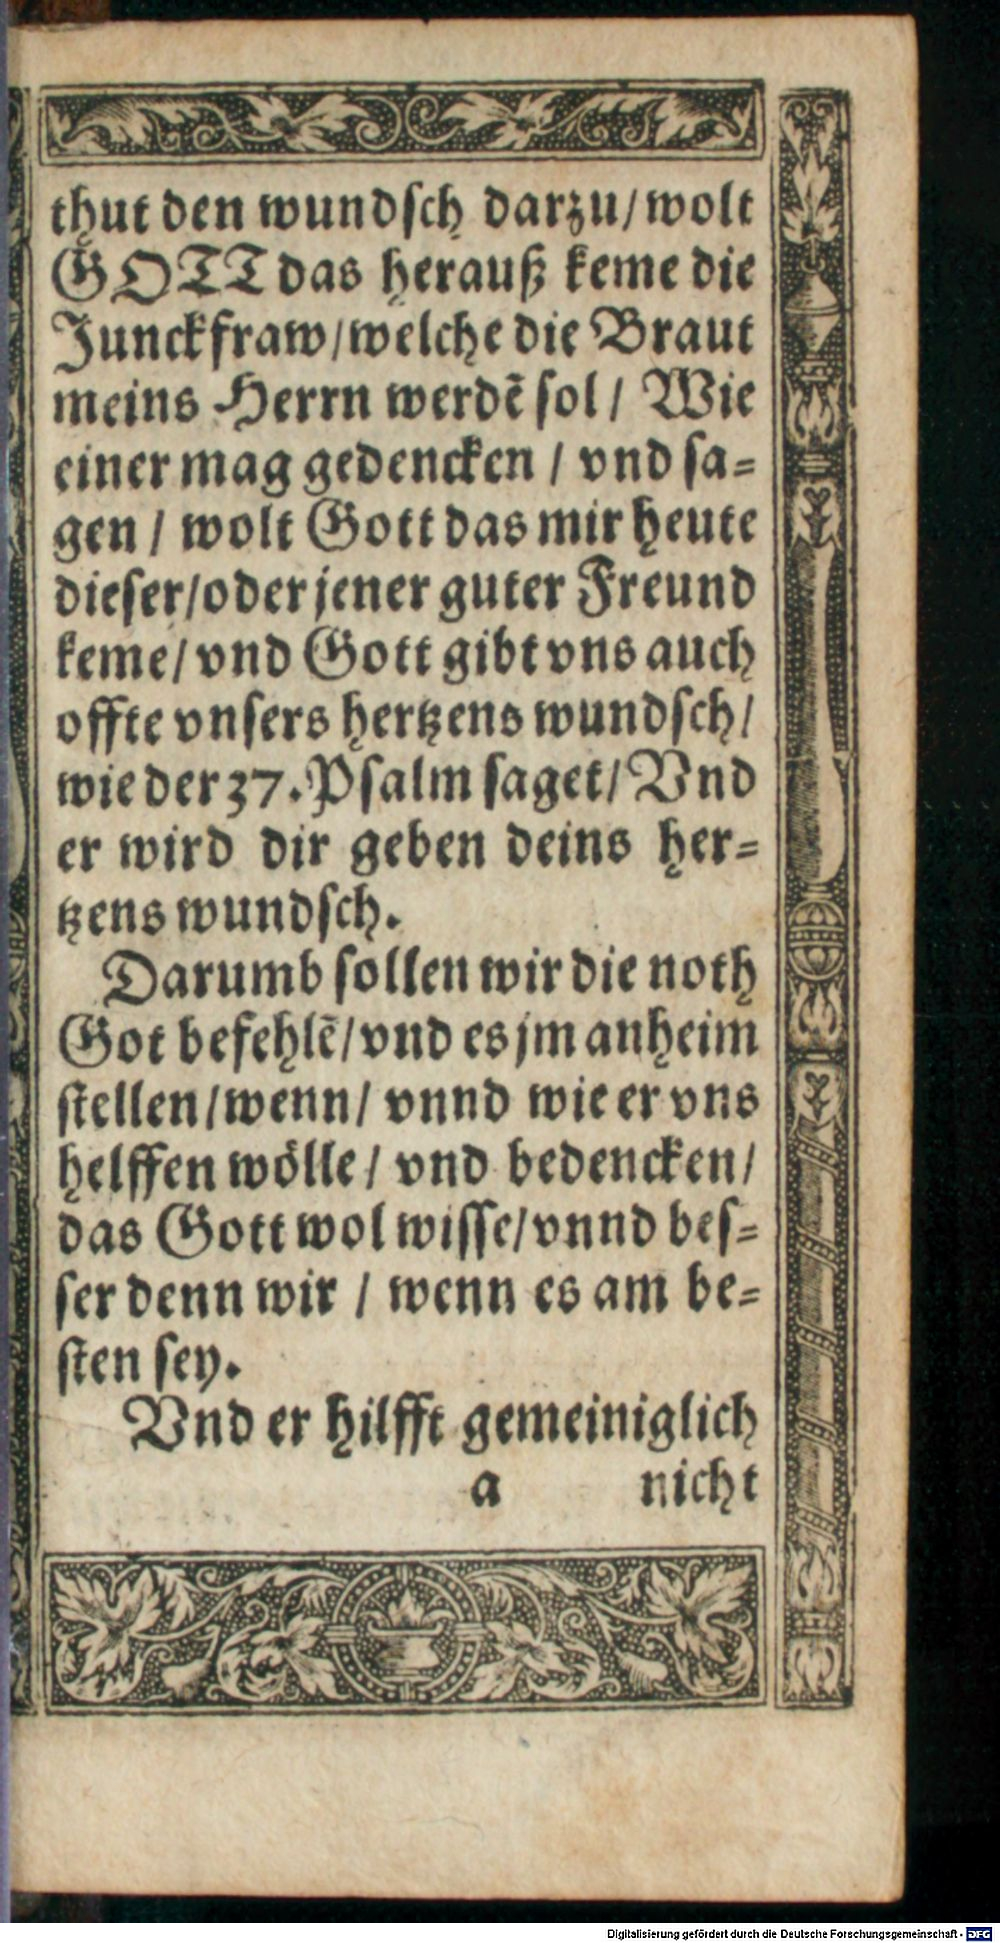 thut den wundsch darzu/ wolt
GOTT das herauß keme die
Junckfraw/ welche die Braut
meins Herrn werdẽ sol/ Wie
einer mag gedencken / vnd sa=
gen / wolt Gott das mir heute
dieser/ oder jener guter Freund
keme/ vnd Gott gibt vns auch
offte vnsers hertzens wundsch/
wie der 37. Psalm saget/ Vnd
er wird dir geben deins her=
tzens wundsch.
Darumb sollen wir die noth
Got befehlẽ/ vnd es jm anheim
stellen/ wenn/ vnnd wie er vns
helffen wölle/ vnd bedencken/
das Gott wol wisse/ vnnd bes=
ser denn wir / wenn es am be=
sten sey.
Vnd er hilfft gemeiniglich
a nicht
Digitalisierung gefördert durch die Deutsche Forschungsgemeinschaft - DFG